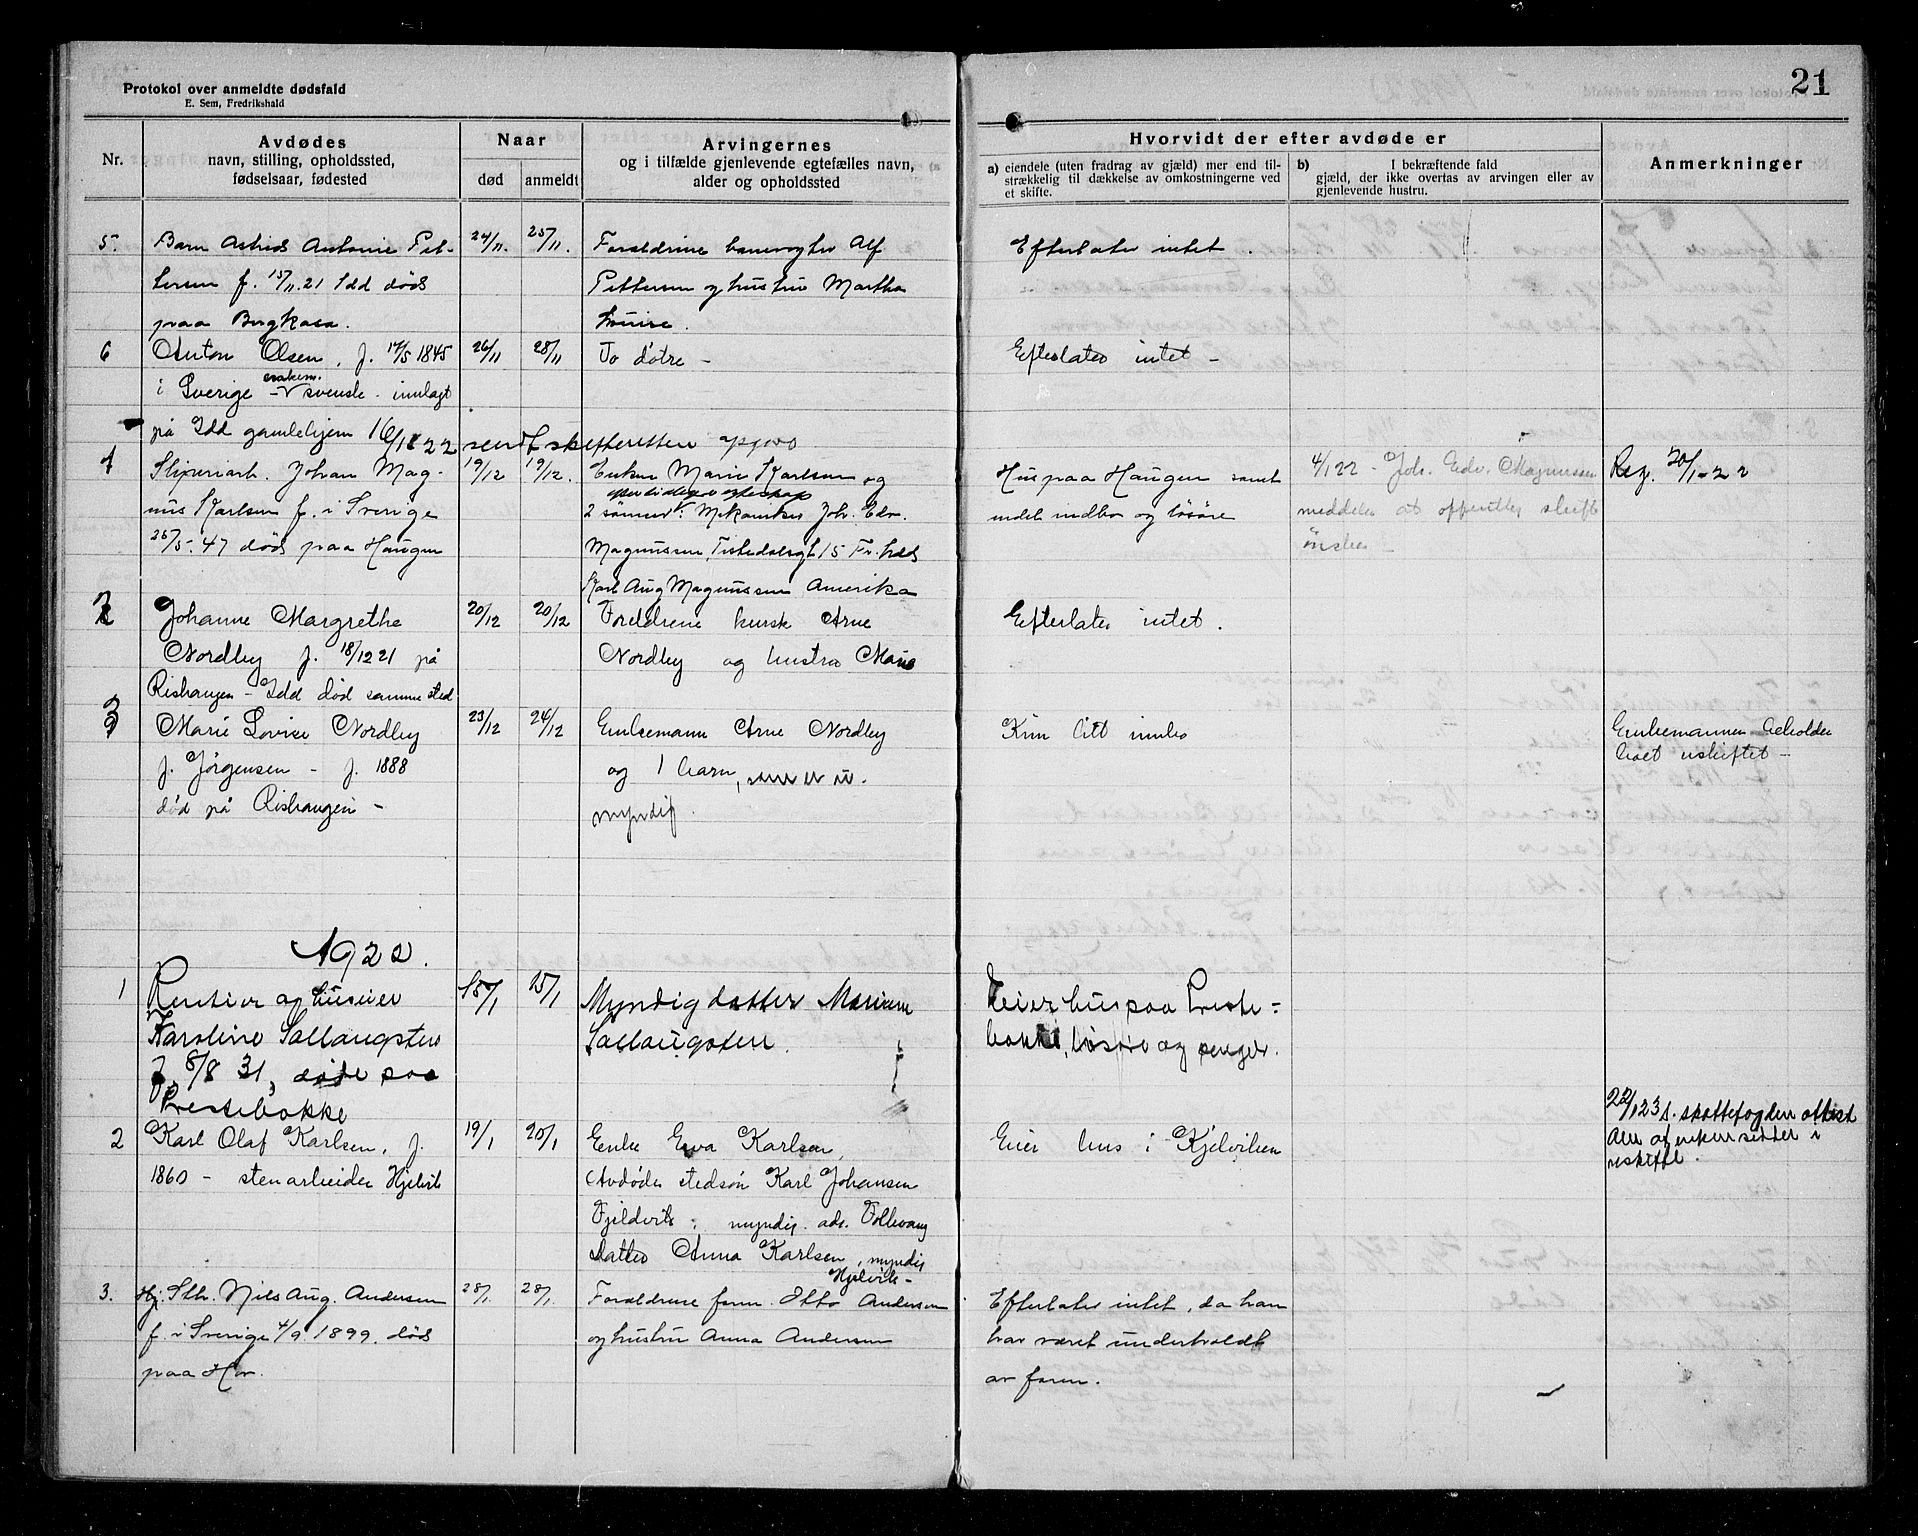 21
Protokol over anmeldte dødsfald
E. Sem, Fredrikshald
Nr.
Avdødes
navn, stilling, opholdssted,
fødselsaar, fødested
Naar
død
anmeldt
Arvingernes
og i tilfælde gjenlevende egtefælles navn,
alder og opholdssted
Hvorvidt der efter avdøde er
a) eiendele (uten fradrag av gjæld) mer end til-
strækkelig til dækkelse av omkostningerne ved
et skifte.
b) I bekræftende fald
gjæld, der ikke overtas av arvingen eller av
gjenlevende hustru.
Anmerkninger
5. Barn Astrid Antonie Pet-
tersen f. 15/11.21 Idd død
paa
24/11. 25/11.
Forældrene banevogter Alf
Pettersen og hustru Martha
Louise.
Efterlater intet.
6 Anton Olsen, f. 17/5 1845
i Sverige - svensk. innlagt
på Idd gamlehjem
26/11 28/11
To døtre -
Efterlater intet -
16/1 22 sendt skifteretten opgave
1 Sliperiarb. Johan Mag-
nus Karlsen f. i Sverige
25/5.47 død paa Haugen
19/12 19/12.
Enken Marie Karlsen og
2 sønner: Mekaniker Joh. Edv.
Magnussen, Tistedalsgt 15 Fr.hald
Karl Aug Magnussen Amerika
Hus paa Haugen samt
endel indbo og løsøre
4/1 22 - Joh. Edv. Magnussen
meddeler at offentlig skifte
ønskes
Reg. 20/1-22
2 Johanne Margrethe
Nordby f. 18/12 21 på
Rishaugen - Idd død samme sted
20/12 20/12
Foreldrene Arne
Nordby og hustru Marie
Efterlater intet.
3 Marie Lovise Nordby
f. Jørgensen - f. 1888
død på Rishaugen -
23/12 24/12
Enkemann Arne Nordby
og 1 barn, som er u.
myndig.
Kun litt innbo
Enkemannen beholder
boet uskiftet -
1922.
1 Rentier og huseier
Karoline Sallaugsten
f. 8/8 31, døde paa
Prestebakke
15/1 15/1
Myndig datter
Sallaugsten.
Eier hus paa Preste-
bakke, løsøre og penger.
2 Karl Olaf Karlsen, f.
1860 - stenarbeider Hjelvik
19/1 20/1
Enke Eva Karlsen,
Avdødes stedsøn Karl Johansen
myndig. adr. Follevang
datter Anna Karlsen, myndig
Hjelvik -
Eier hus i Kjelviken
22/1 23 f. skattefogden attest
om at enken sidder i
uskifte.
3. Hj. Sth. Nils Aug. Andersen
f. i Sverige 4/9 1899. død
paa Hov.
28/1. 28/1.
Forældrene form. Otto Andersen
og hustru Anna Andersen
Efterlater intet, da han
har været underholdt
av faren.